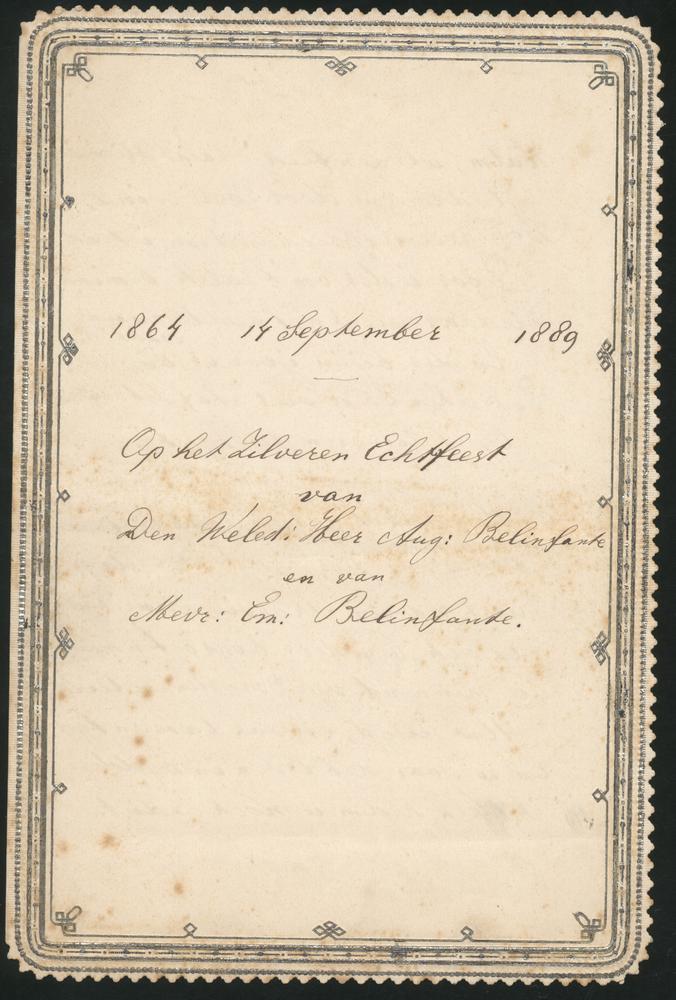 1864 14 September 1889
Op het Zilveren Echtfeest
van
Den Weled: Heer Aug: Belinfante
en van
Mevr: Em: Belinfante.